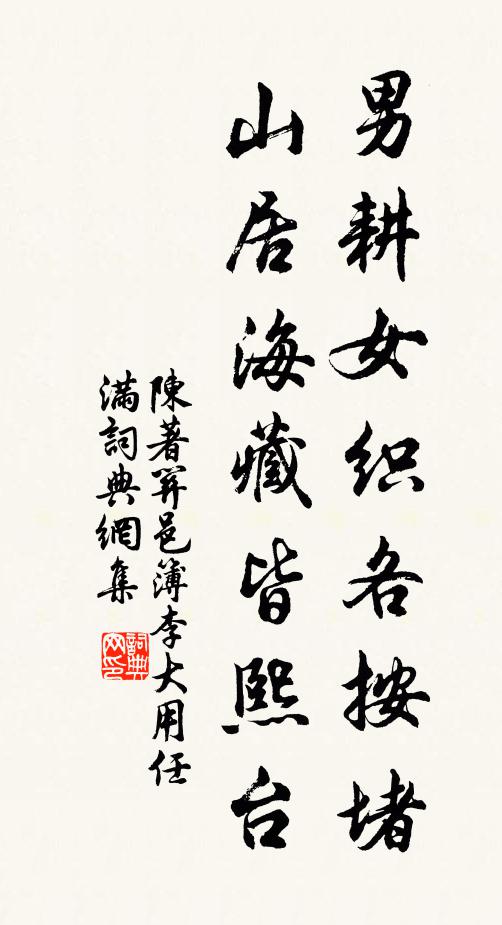 男耕女织各按堵
山居海藏皆熙台
陳著羿邑簿李大用任
满詞典網集
詞典网印